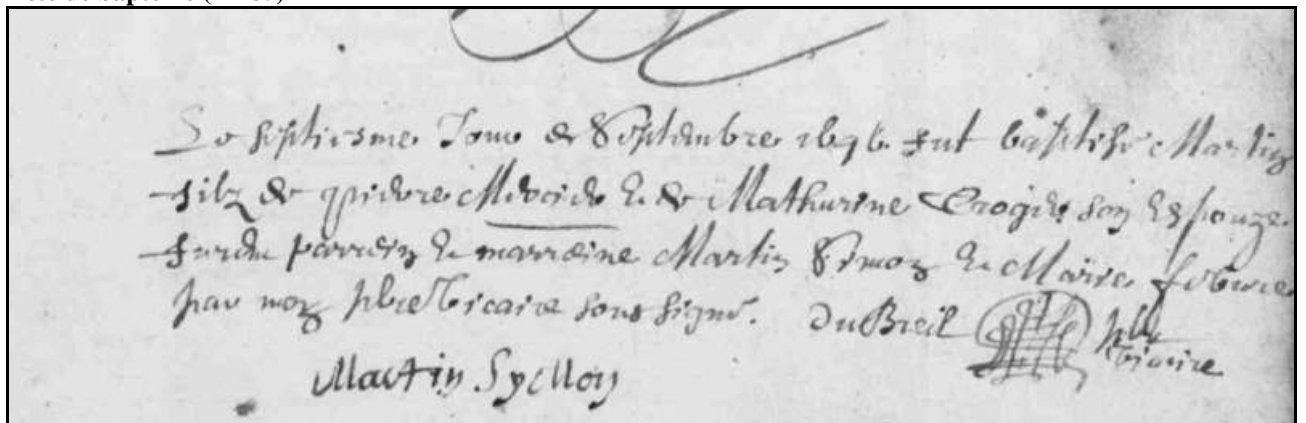 Le septiesme Jour de Septembre 1696 fut baptisé Martin
filz de Mercier & de Mathurine son Espouze
furent parrein & marreine Martin Simon & Marie febvre
par moy pbre Vicaire soussigné. DuBreil pbre
Vicaire
Martin Symon